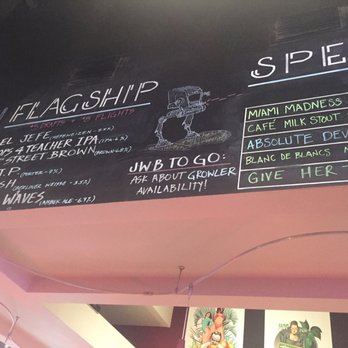 FLAGSHIP
$5 DRAFTS + $8 FLIGHTS
EL JEFE (HEFEWEIZEN - 5.5%)
4 TEACHER IPA
STREET BROWN
.P. (PORTER
SH (BERLINER WEISSE
WAVES (AMBER ALE
JWB TO GO:
ASK ABOUT GROWLER
AVAILABILITY!
SPE
MIAMI MADNESS
CAFÉ MILK STOUT
ABSOLUTE DEV
BLANC DE BLANCS
GIVE HER T